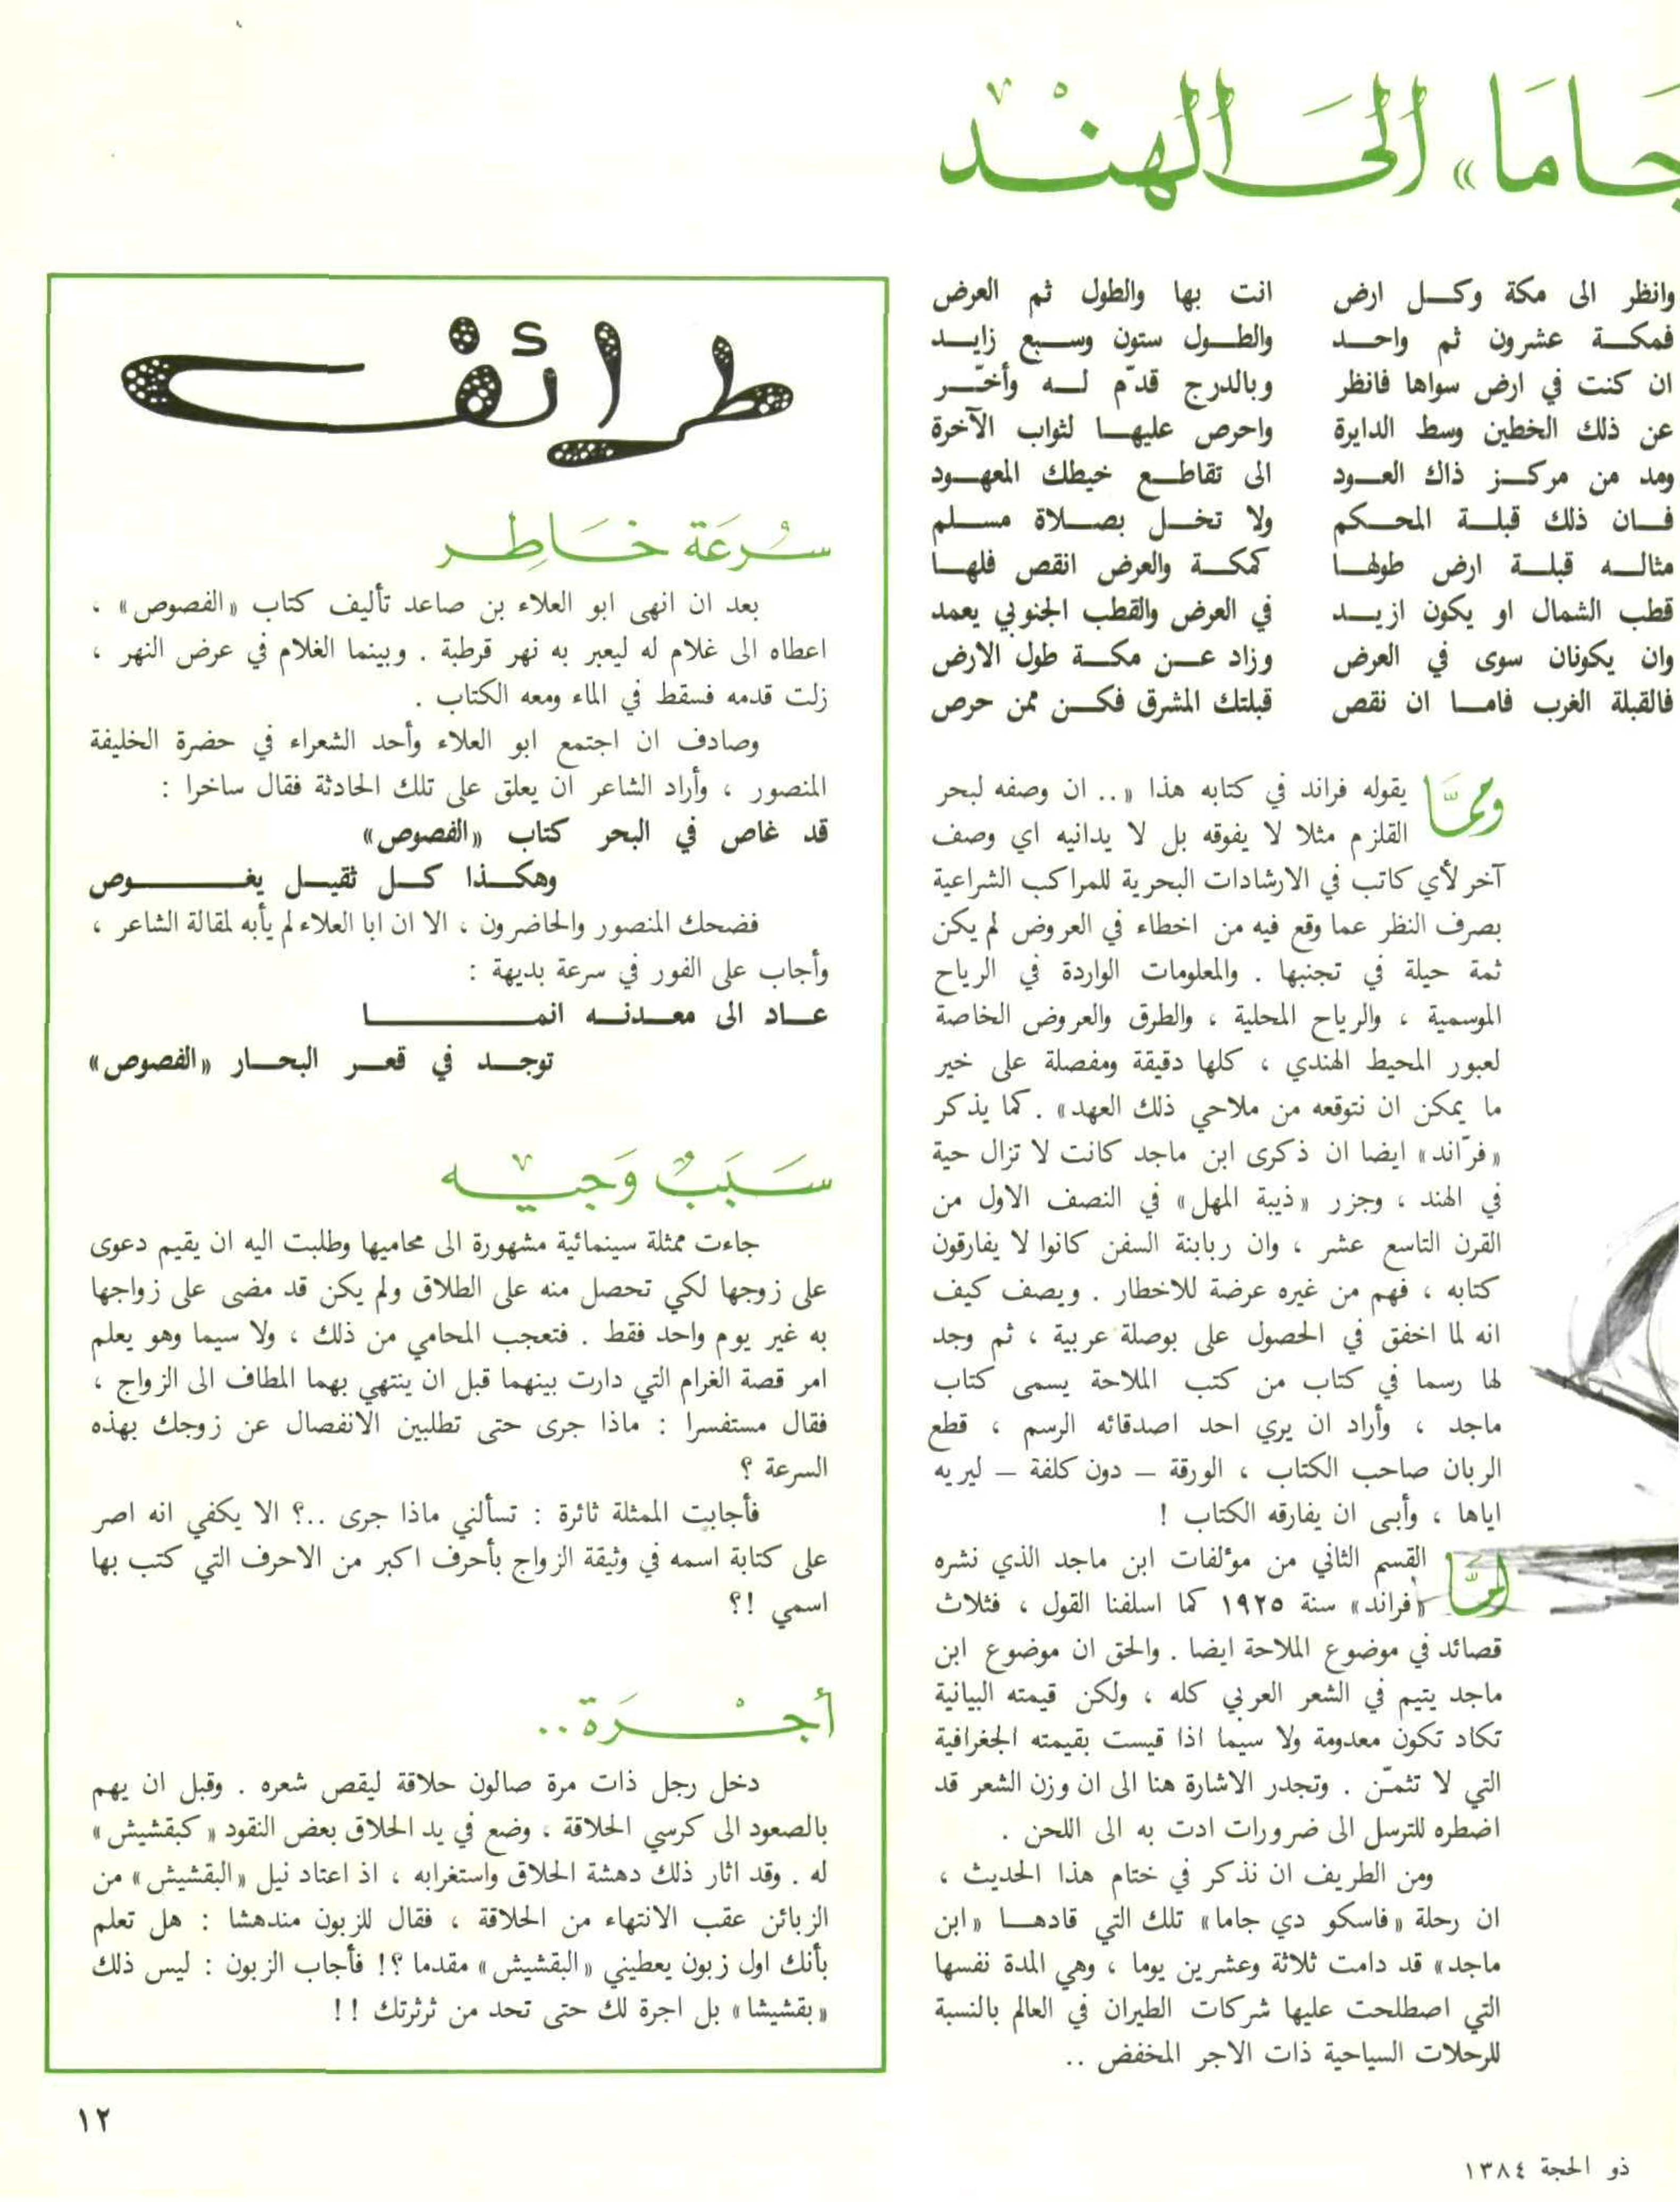 جاما» الى الهند
وانظر الى مكة وكل ارض انت بها والطول ثم العرض
فمكة عشرون ثم واحد والطول ستون وسبع زايد
ان كنت في ارض سواها فانظر وبالدرج قدّم له وأخّر
عن ذلك الخطين وسط الدايرة واحرص عليها لثواب الآخرة
ومد من مركز ذاك العود الى تقاطع خيطك المعهود
فان ذلك قبلة المحكم ولا تخل بصلاة مسلم
مثاله قبلة ارض طولها كمكة والعرض انقص فلها
قطب الشمال او يكون ازيد في العرض والقطب الجنوبي يعمد
وان يكونان سوى في العرض وزاد عن مكة طول الارض
فالقبلة الغرب فاما ان نقص قبلتك المشرق فكن ممن حرص
ومما يقوله فراند في كتابه هذا «.. ان وصفه لبحر
القلزم مثلا لا يفوقه بل لا يدانيه اي وصف
آخر لأي كاتب في الارشادات البحرية للمراكب الشراعية
بصرف النظر عما وقع فيه من اخطاء في العروض لم يكن
ثمة حيلة في تجنبها . والمعلومات الواردة في الرياح
الموسمية ، والرياح المحلية ، والطرق والعروض الخاصة
لعبور المحيط الهندي ، كلها دقيقة ومفصلة على خير
ما يمكن ان نتوقعه من ملاحي ذلك العهد» . كما يذكر
«فرّاند» ايضا ان ذكرى ابن ماجد كانت لا تزال حية
في الهند ، وجزر «ذيبة المهل» في النصف الاول من
القرن التاسع عشر ، وان ربابنة السفن كانوا لا يفارقون
كتابه ، فهم من غيره عرضة للاخطار . ويصف كيف
انه لما اخفق في الحصول على بوصلة عربية ، ثم وجد
لها رسما في كتاب من كتب الملاحة يسمى كتاب
ماجد ، وأراد ان يري احد اصدقائه الرسم ، قطع
الربان صاحب الكتاب ، الورقة – دون كلفة – ليريه
اياها ، وأبى ان يفارقه الكتاب !
اما القسم الثاني من مؤلفات ابن ماجد الذي نشره
«فراند» سنة ١٩٢٥ كما اسلفنا القول ، فثلاث
قصائد في موضوع الملاحة ايضا . والحق ان موضوع ابن
ماجد يتيم في الشعر العربي كله ، ولكن قيمته البيانية
تكاد تكون معدومة ولا سيما اذا قيست بقيمته الجغرافية
التي لا تثمّن . وتجدر الاشارة هنا الى ان وزن الشعر قد
اضطره للترسل الى ضرورات ادت به الى اللحن .
ومن الطريف ان نذكر في ختام هذا الحديث ،
ان رحلة «فاسكو دي جاما» تلك التي قادها «ابن
ماجد» قد دامت ثلاثة وعشرين يوما ، وهي المدة نفسها
التي اصطلحت عليها شركات الطيران في العالم بالنسبة
للرحلات السياحية ذات الاجر المخفض ..
طرائف
سُرعَة خَاطِر
بعد ان انهى ابو العلاء بن صاعد تأليف كتاب «الفصوص» ،
اعطاه الى غلام له ليعبر به نهر قرطبة . وبينما الغلام في عرض النهر ،
زلت قدمه فسقط في الماء ومعه الكتاب .
وصادف ان اجتمع ابو العلاء وأحد الشعراء في حضرة الخليفة
المنصور ، وأراد الشاعر ان يعلق على تلك الحادثة فقال ساخرا :
قد غاص في البحر كتاب «الفصوص»
وهكذا كل ثقيل يغوص
فضحك المنصور والحاضرون ، الا ان ابا العلاء لم يأبه لمقالة الشاعر ،
وأجاب على الفور في سرعة بديهة :
عاد الى معدنه انما
توجد في قعر البحار «الفصوص»
سَبَبٌ وَجيْه
جاءت ممثلة سينمائية مشهورة الى محاميها وطلبت اليه ان يقيم دعوى
على زوجها لكي تحصل منه على الطلاق ولم يكن قد مضى على زواجها
به غير يوم واحد فقط . فتعجب المحامي من ذلك ، ولا سيما وهو يعلم
امر قصة الغرام التي دارت بينهما قبل ان ينتهي بهما المطاف الى الزواج ،
فقال مستفسرا : ماذا جرى حتى تطلبين الانفصال عن زوجك بهذه
السرعة ؟
فأجابت الممثلة ثائرة : تسألني ماذا جرى ..؟ الا يكفي انه اصر
على كتابة اسمه في وثيقة الزواج بأحرف اكبر من الاحرف التي كتب بها
اسمي !؟
أجْرَة ..
دخل رجل ذات مرة صالون حلاقة ليقص شعره . وقبل ان يهم
بالصعود الى كرسي الحلاقة ، وضع في يد الحلاق بعض النقود «كبقشيش»
له . وقد اثار ذلك دهشة الحلاق واستغرابه ، اذ اعتاد نيل «البقشيش» من
الزبائن عقب الانتهاء من الحلاقة ، فقال للزبون مندهشا : هل تعلم
بأنك اول زبون يعطيني «البقشيش» مقدما ؟! فأجاب الزبون : ليس ذلك
«بقشيشا» بل اجرة لك حتى تحد من ثرثرتك !!
١٢
ذو الحجة ١٣٨٤